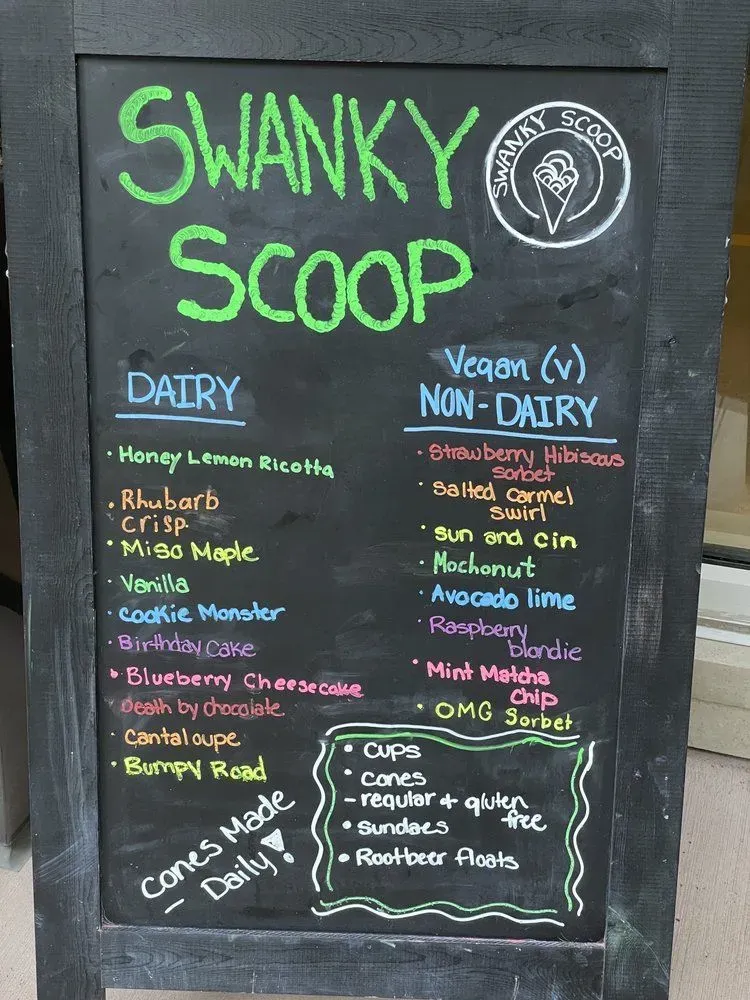 SWANKY
SCOOP
SWANKY SCOOP
DAIRY
· Honey Lemon Ricotta
· Rhubarb
crisp
· Miso Maple
· Vanilla
· Cookie Monster
· Birthday Cake
· Blueberry Cheesecake
Death by chocolate
· Cantaloupe
· Bumpy Road
Vegan (v)
NON-DAIRY
· Strawberry Hibiscus
sorbet
· Salted Carmel
swirl
· sun and cin
· Mochonut
· Avocado lime
· Raspberry
blondie
· Mint Matcha
Chip
· OMG Sorbet
• cups
• cones
- regular + gluten
free
• sundaes
• Rootbeer floats
Cones Made
- Daily!